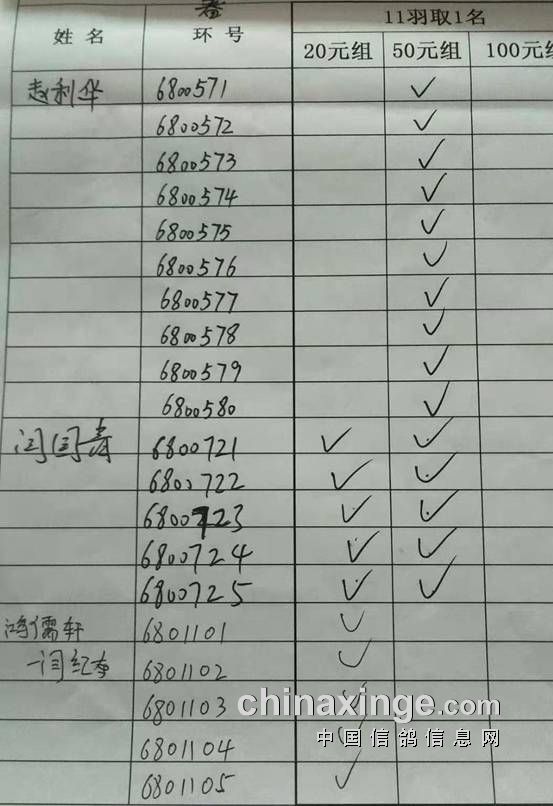 11羽取1名
姓 名 环 号 20元组 50元组 100元组
赵利华 6800571 ✓
6800572 ✓
6800573 ✓
6800574 ✓
6800575 ✓
6800576 ✓
6800577 ✓
6800578 ✓
6800579 ✓
6800580 ✓
闫国青 6800721 ✓ ✓
6800722 ✓ ✓
6800723 ✓ ✓
6800724 ✓ ✓
6800725 ✓ ✓
鸿儒轩 6801101 ✓
一闫红 6801102 ✓
6801103 ✓
chinaxinge.com
6801104 ✓
中国信鸽信息网
6801105 ✓